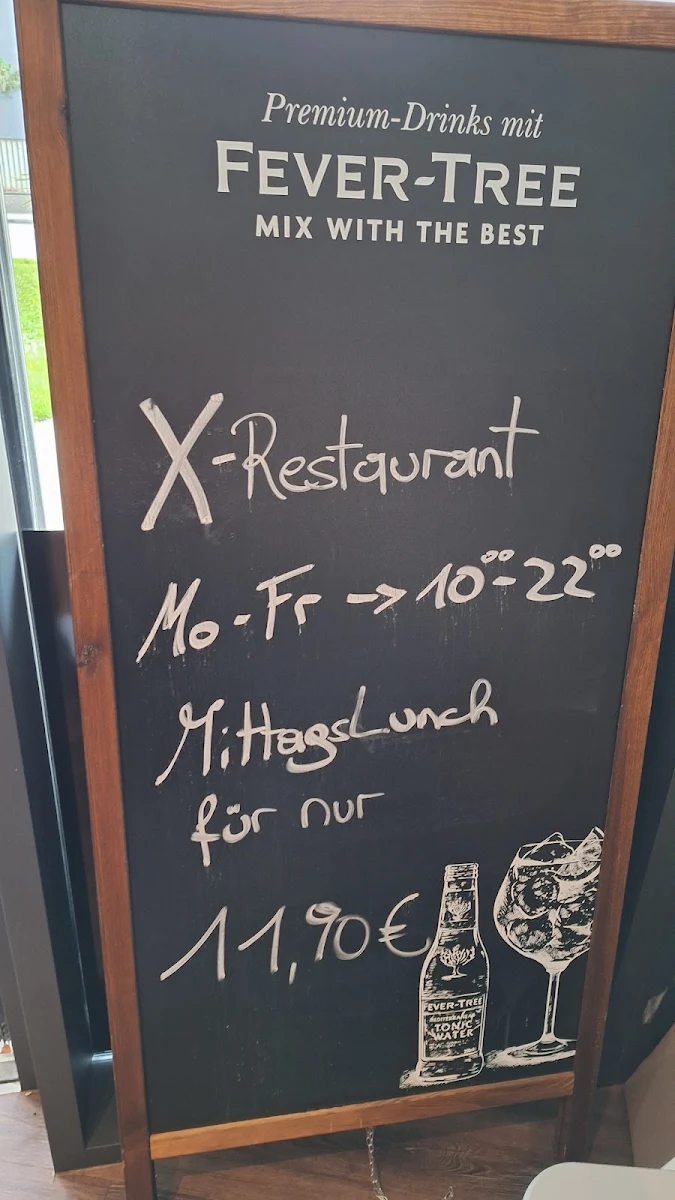 Premium-Drinks mit
FEVER-TREE
MIX WITH THE BEST
X-Restaurant
Mo-Fr → 10⁰⁰-22⁰⁰
MittagsLunch
für nur
11,90 €
FEVER-TREE
MEDITERRANEAN
TONIC
WATER